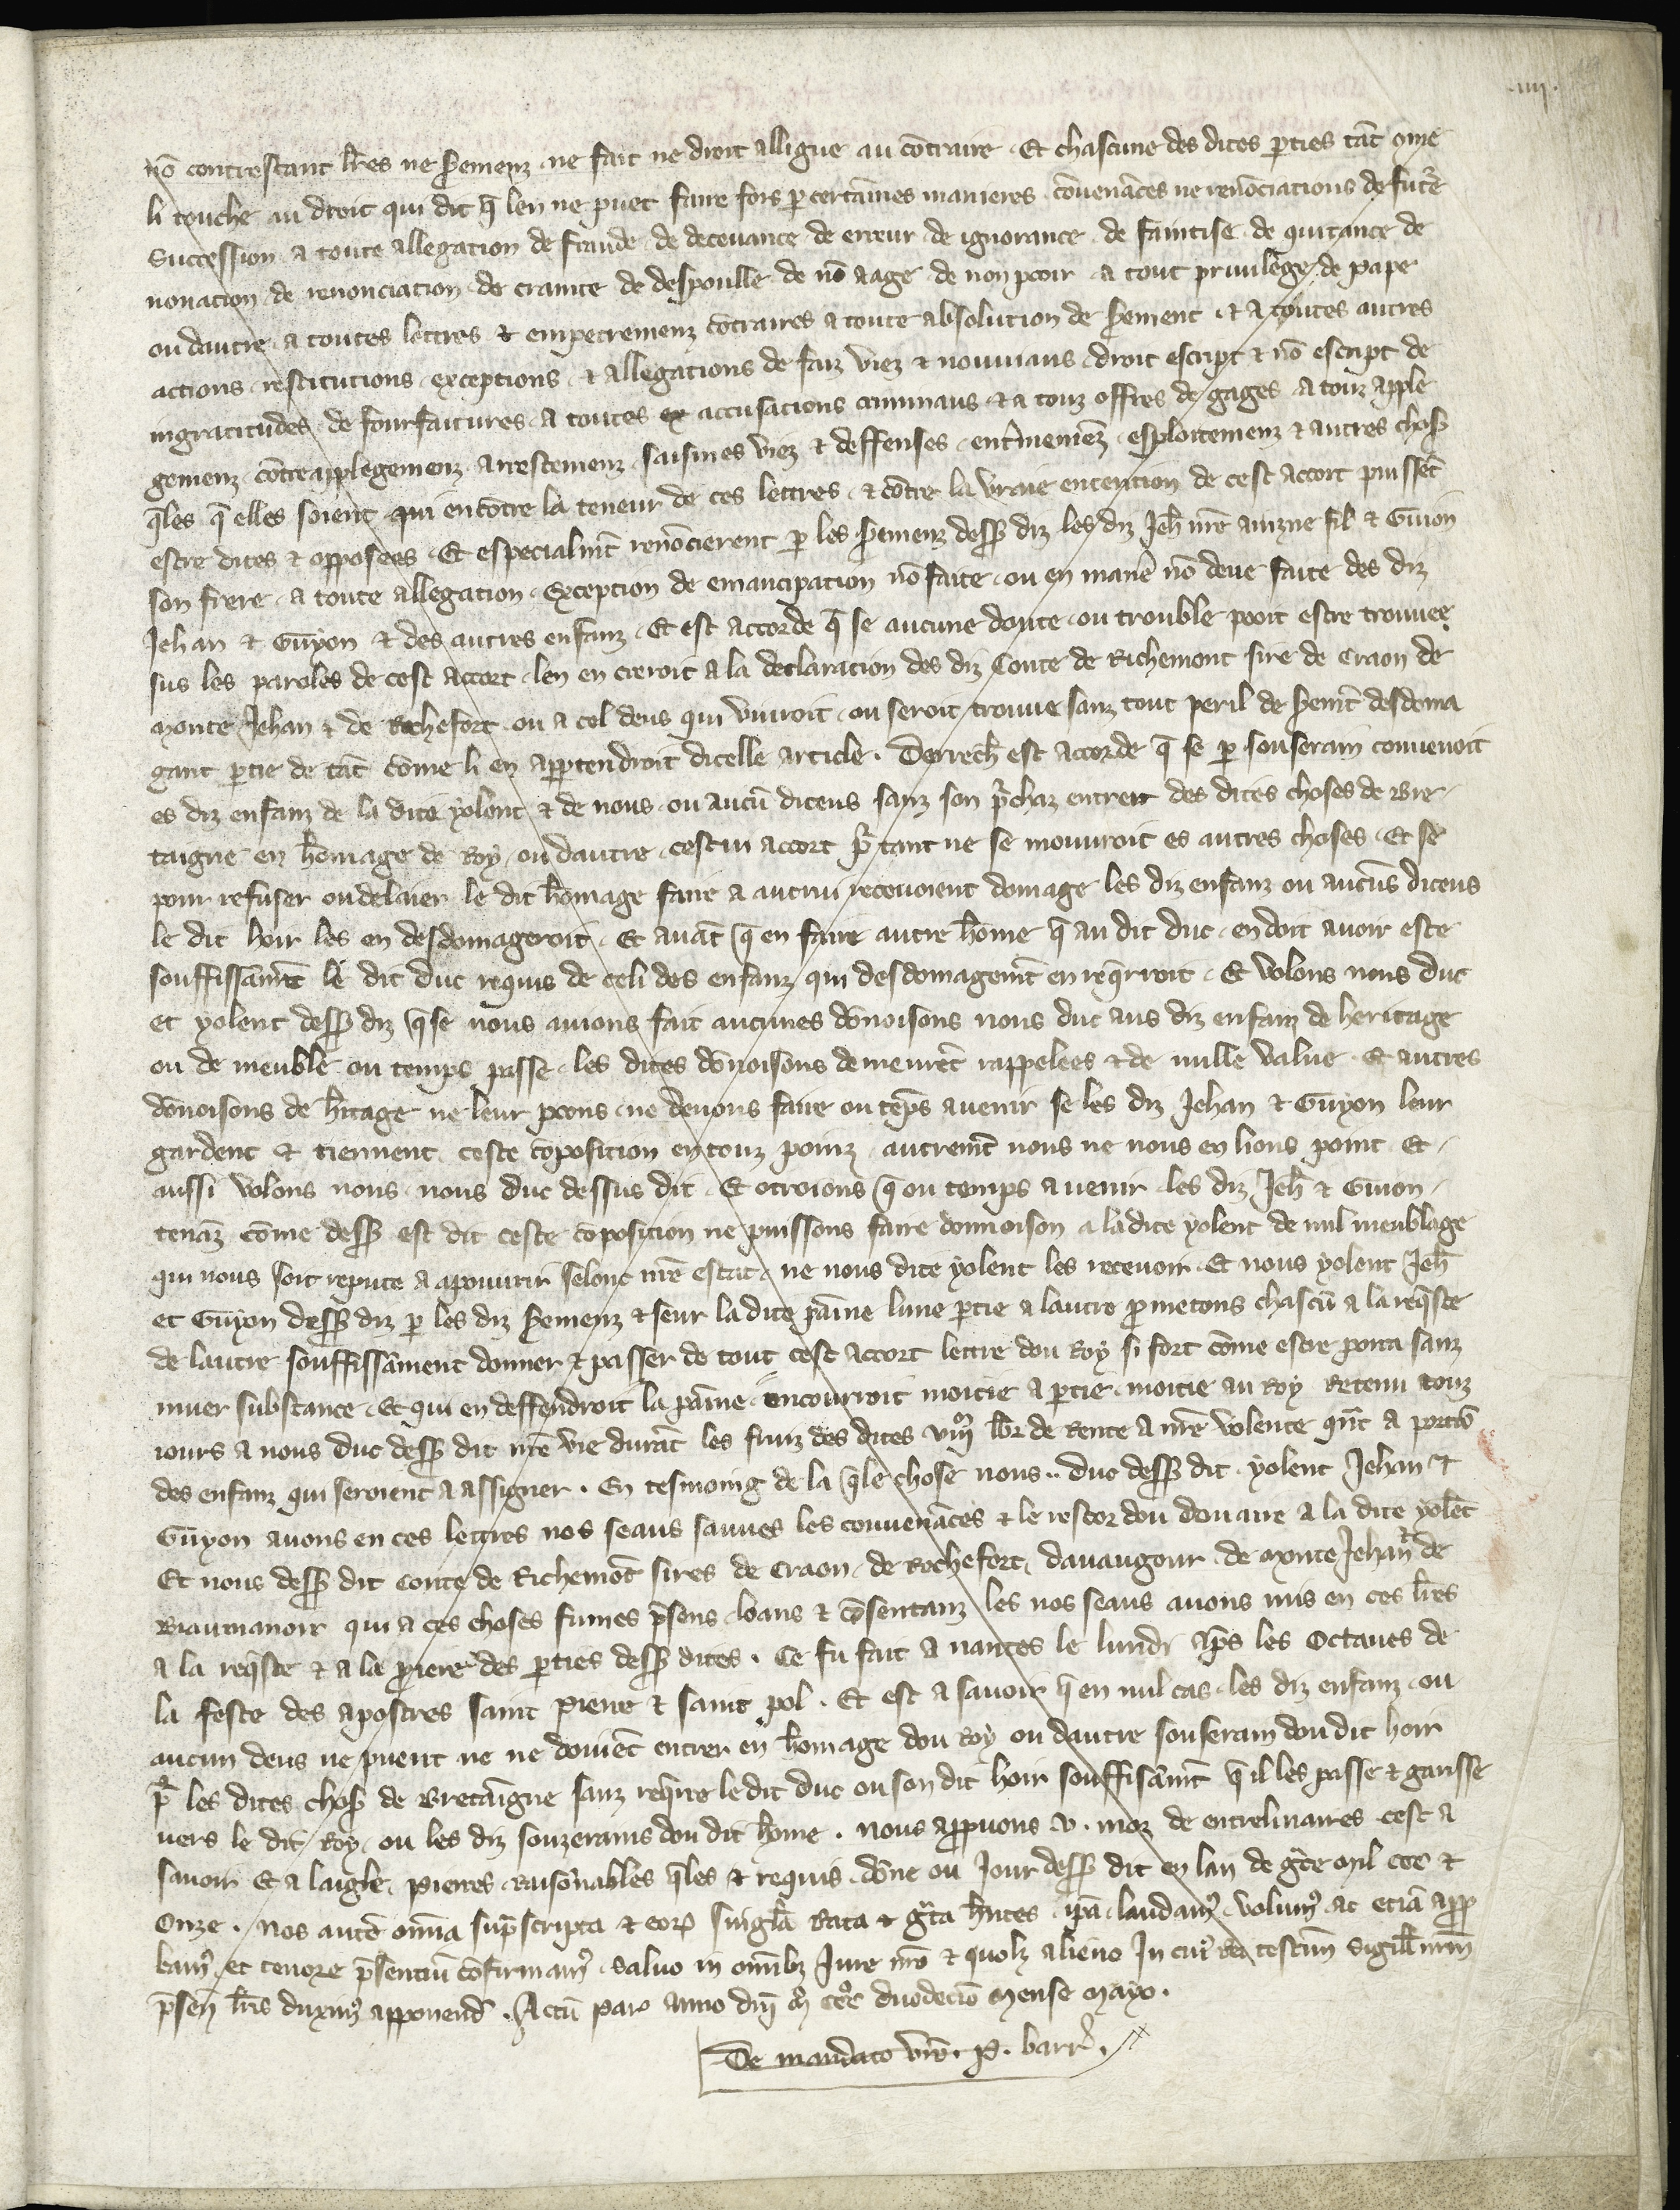 .iiii.
nō contrestant lr̄es ne s̄emenz ne fait ne droit alligue au cōtraire . Et chascune des dites ꝑties tāt ōme
li touche au droit qui dit q̄ len ne puet faire fors ꝑ certaines manieres convenāces ne renōciations de fut̄e
Succession a toute allegation de fraude de decevance de erreur de ignorance de faintise de quitance de
novation de renonciation de crainte de despoulle de nō aage de non pooir a tout privilege de pape
ou dautre a toutes lettres & empetremenz cōtraires a toute absolution de s̄ement . & a toutes autres
actions restitutions exceptions & allegations de faiz viez & nouviaus droit escript & nō escript de
ingratitudes de fourfaitures a toutes ex accusations criminaus & a touz offres de gages a touz apple
gemenz cōtreapplegemenz arrestemenz saisines viez & deffenses ent̄meniez esploitemenz & autres chos̄
q̄les q̄ elles soient qui encōtre la teneur de ces lettres & cōtre la vraie entention de cest accort puissēt
estre dites & opposees . Et especialmt̄ renōcierent ꝑ les s̄emenz dess̄ diz les diz Jeh̄ nr̄e ainzne filz & Guion
son frere a toute allegation Exception de emancipation nō faite ou en manē nō deue faite des diz
Jehan & Guyon & des autres enfanz . Et est accorde q̄ se aucune doute ou trouble pooit estre trouvee
sus les paroles de cest accort len en creroit a la declaration des diz Conte de Richemont sire de Craon de
Monte Jehan & de Rochefort ou a cel deus qui vivroit ou seroit trouve sanz tout peril de s̄emt̄ desdoma
gant ꝑtie de tāt cōme li en appartendroit dicelle article . Derrech̄ est accorde q̄ se ꝑ souserain convenoit
es diz enfanz de la dite yolent & de nous ou aucū diceus sanz son p̄chaz entrer des dites choses de Bre
taigne en hōmage de Roy ou dautre cestui accort p̄ tant ne se mouvroit es autres choses . Et se
pour refuser ou delaier le dit hōmage faire a autrui recevoient domage les diz enfanz ou aucūs diceus
le dit hoir les en desdomageroit . Et avāt q̄ en faire autre hōme q̄ au dit duc en doit avoir este
souffissāmt̄ le dit duc requis de celi des enfanz qui desdomagemt̄ en req̄rroit . Et volons nous duc
et yolent dess̄ diz q̄ se nous avions fait aucunes dōnoisons nous duc aus diz enfanz de heritage
ou de meuble ou temps passe les dites dōnoisons demeurēt rappelees & de nulle value . Et autres
dōnoisons de h̄itage ne leur poons ne devons faire ou tēps avenir se les diz Jehan & Guyon leur
gardent & tiennent ceste cōposition en touz poinz autremt̄ nous ne nous en lions point . Et
aussi volons nous nous duc dessus dit . Et otroions q̄ ou temps avenir les diz Jeh̄ & Guion
tenāz cōme dess̄ est dit ceste cōposition ne puissons faire donnoison a la dite yolent de nul meublage
qui nous soit repute a apouvrir selonc nr̄e estat ne nous dite yolent les recevoir . Et nous yolent Jeh̄
et Guyon dess̄ diz ꝑ les diz s̄emenz & seur la dite paīne lune ꝑtie a lautre ꝓmetons chascū a la req̄ste
de lautre souffissāment donner & passer de tout cest accort lettre dou Roy si fort cōme estre porra sanz
muer substance . Et qui en deffendroit la paīne encourroit moitie a ꝑtie moitie au Roy Retenu touz
iours a nous duc dess̄ dit nr̄e vie durāt les fruiz des dites viijᵐ lbr̄ de Rente a nr̄e volente qn̄t a portiō
des enfanz qui seroient a assigner . En tesmoing de la q̄le chose nous .. duc dess̄ dit yolent Jehan &
Guyon avons en ces lettres nos seaus sauves les convenāces & le restor dou douaire a la dite yolēt
Et nous dess̄ dit Conte de Richemōt sires de Craon de Rochefort davaugour de Monte Jehan & de
Biaumanoir qui a ces choses fumes p̄sens loans & cōsentanz les nos seaus avons mis en ces lr̄es
a la req̄ste & a la p̄iere des ꝑties dess̄ dites . Ce fu fait a nantes le lundi ap̄s les Octaves de
la feste des apostres saint Pierre & saint pol . Et est a savoir q̄ en nul cas les diz enfanz ou
aucun deus ne puent ne ne doivēt entrer en hōmage dou Roy ou dautre souserain dou dit hoir
p̄ les dites chos̄ de Bretaigne sanz req̄rre le dit duc ou son dit hoir souffisāmt̄ q̄ il les passe & garisse
vers le dit Roy ou les diz souzerains dou dit hōme . nous app̄uvons v . moz de entrelinaires cest a
savoir Et a laigle Pierres Raisōnables q̄les & requis dōne ou Jour dess̄ dit en lan de gr̄ce Mil ccc &
Onze . Nos autē omīa sup̄scripta & eoꝝ singl̄a Rata & gr̄ta hn̄tes ip̄a laudamꝰ volumꝰ ac etiā app̄
bamꝰ et tenore p̄sentiū cōfirmamꝰ Salvo in omībꝫ Jure nr̄o & quolꝫ alieno In cuiꝰ Rei testim̄ Sigill̄ nr̄m
p̄sen̄ lr̄is duximꝰ apponend̄ . Actū Parꝫ anno dn̄i Mͦ CCCͦ duodecīo Mense Mayo .
De mandato vr̄o . P . barr̄ .